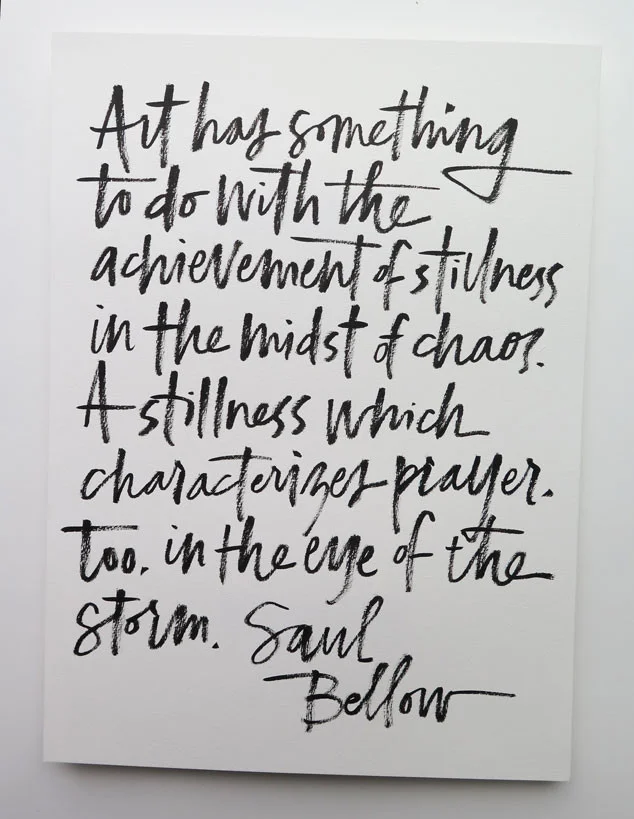 Art has something
to do with the
achievement of stillness
in the midst of chaos.
A stillness which
characterizes prayer.
too. in the eye of the
storm. Saul
Bellow